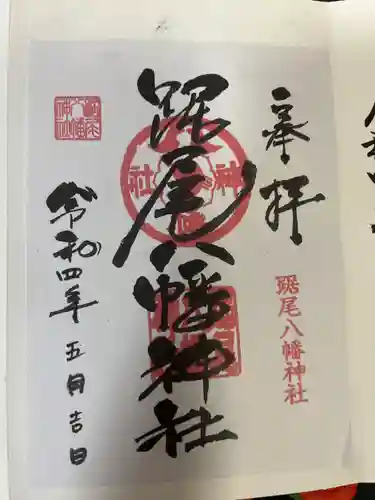 奉拝
踞尾八幡神社
踞尾八幡神社
令和四年五月吉日